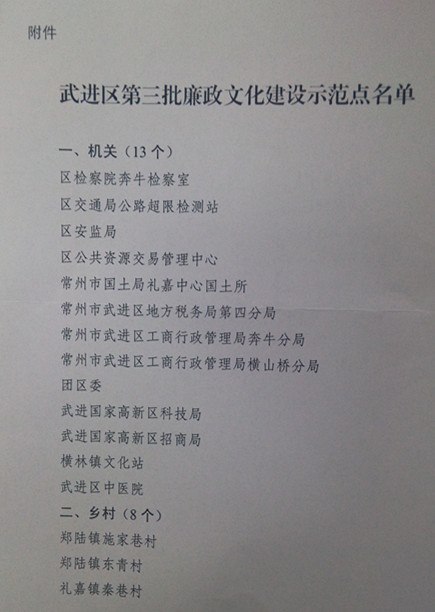 附件
武进区第三批廉政文化建设示范点名单
一、机关（13个）
区检察院奔牛检察室
区交通局公路超限检测站
区安监局
区公共资源交易管理中心
常州市国土局礼嘉中心国土所
常州市武进区地方税务局第四分局
常州市武进区工商行政管理局奔牛分局
常州市武进区工商行政管理局横山桥分局
团区委
武进国家高新区科技局
武进国家高新区招商局
横林镇文化站
武进区中医院
二、乡村（8个）
郑陆镇施家巷村
郑陆镇东青村
礼嘉镇秦巷村